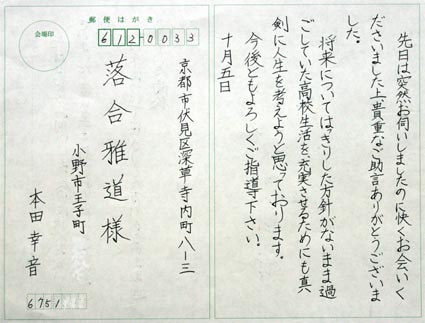 郵便はがき
会場印
612-0033
京都市伏見区深草寺内町八ー三
落合雅道様
小野市王子町
本田幸音
6751
先日は突然お伺いしましたのに快くお会いく
ださいました上貴重なご助言ありがとうございま
した。
将来についてはっきりした方針がないまま過
ごしていた高校生活を充実させるためにも真
剣に人生を考えようと思っております。
今後ともよろしくご指導下さい。
十月五日